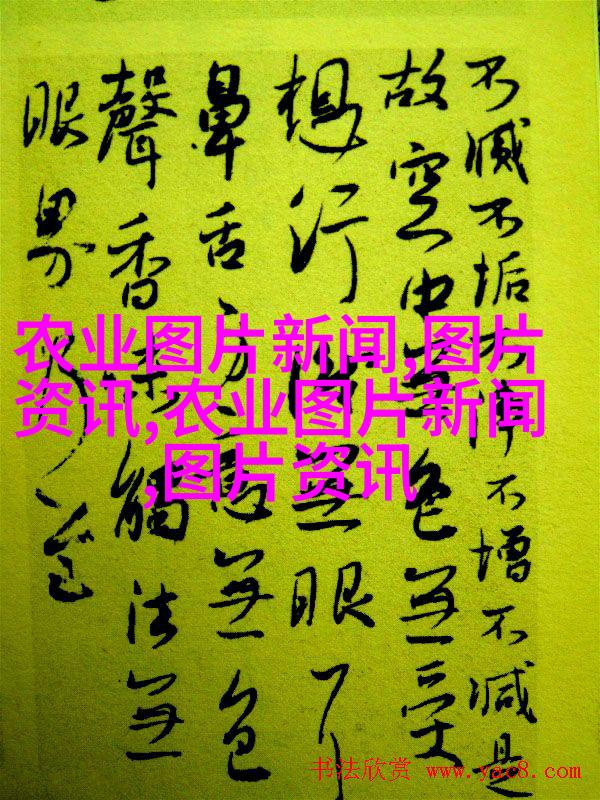 不滅不垢不淨不增不減是
故空中無色無受
想行識無眼耳
鼻舌身意無色
聲香味觸法無
眼界乃至
农业图片新闻,图片
资讯,农业图片新闻
,图片资讯
书法欣赏 www.yac8.com